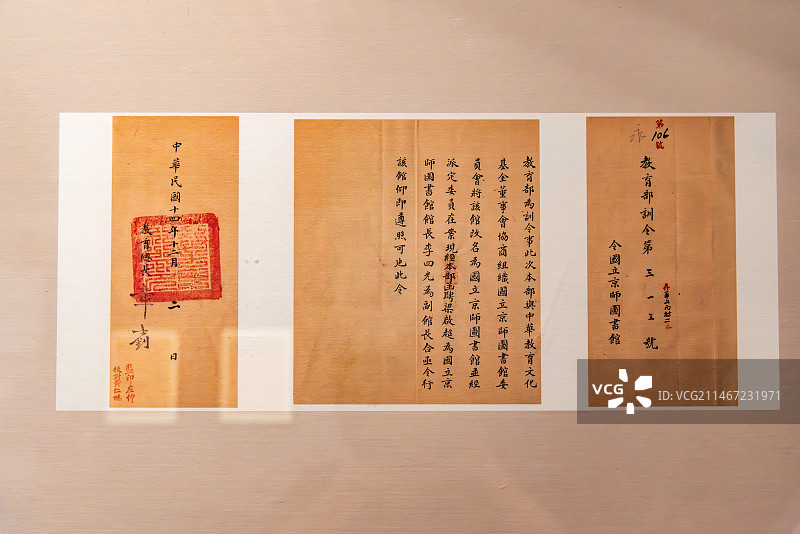 第
106
號
永
教育部訓令第三一三號
令國立京師圖書館
教育部為訓令事此次本部與中華教育文化
基金董事會協商組織國立京師圖書館委
員會將該館改名為國立京師圖書館並經
派定委員在案現經本部函聘梁啟超為國立京
師圖書館館長李四光為副館長合亟令行
該館仰即遵照可也此令
中華民國十四年十二月二日
教育總長
章士釗
監印左仲
校對黃仁
VCG
VCG211467231971